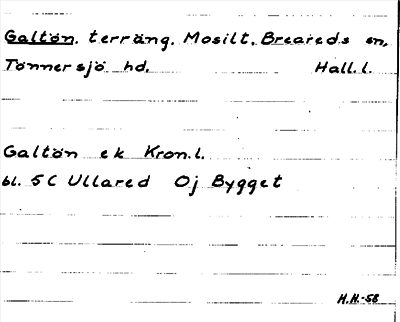 Galtön. terräng. Mosilt, Breareds sn,
Tönnersjö hd. Hall.l.
Galtön ek Kron.l.
bl. 5C Ullared Oj Bygget
H.H.-58